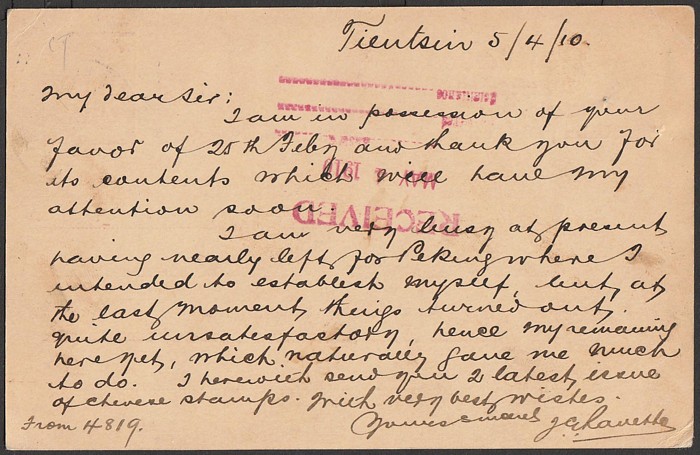 Tientsin 5/4/10.
My dear Sir:
I am in possession of your
favor of 25th Feby and thank you for
its contents which will have my
attention soon.
I am very busy at present
having nearly left for Peking where I
intended to establish myself, but, at
the last moment things turned out
quite unsatesfactory, hence my remaining
here yet, which naturally gave me much
to do. I herewith send you 2 latest issue
of Chinese stamps. With very best wishes.
Yours
From 4819.
RECEIVED
MAY 1910